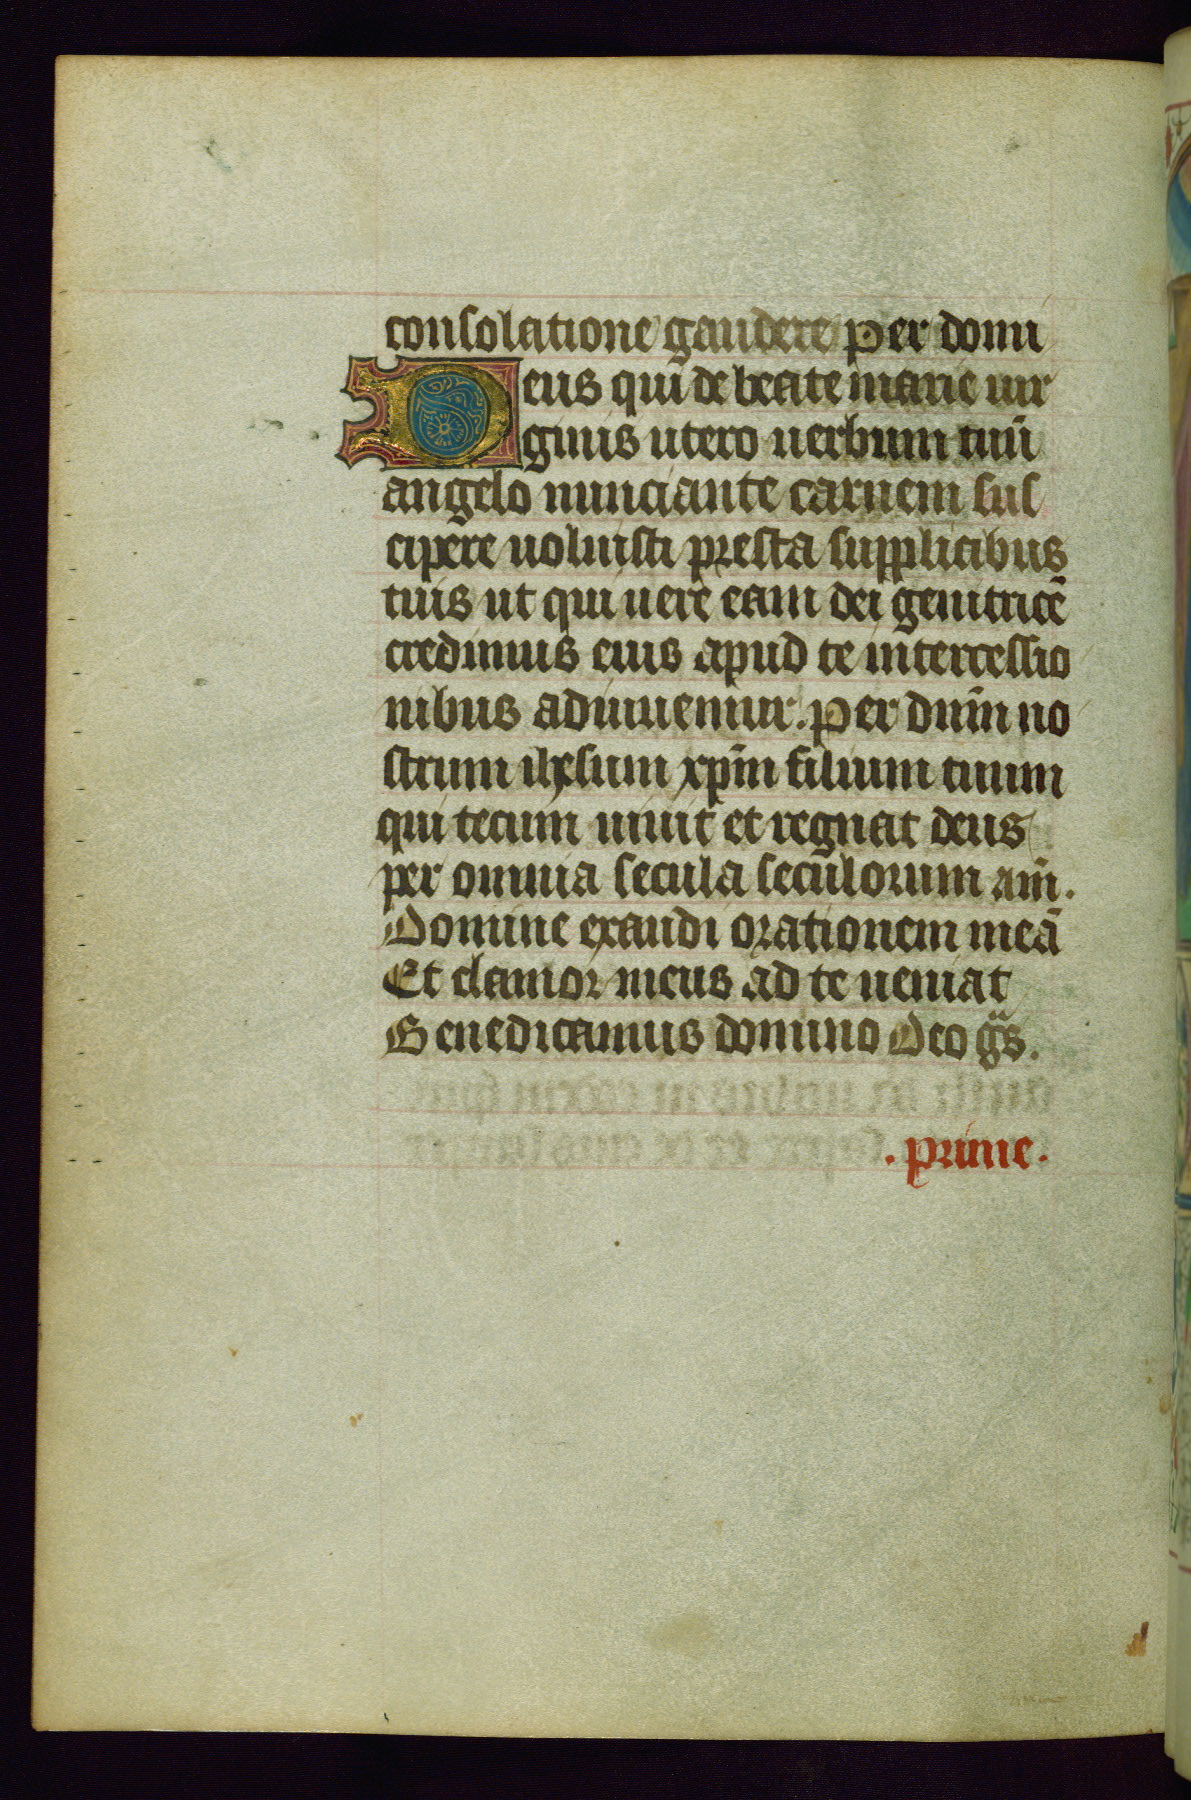 consolatione gaudere per domi
Deus qui de beate marie uir
ginis utero uerbum tuū
angelo nunciante carnem sus
cipere uoluisti presta supplicibus
tuis ut qui uere eam dei genitricē
credimus eius apud te intercessio
nibus adiuuemur. per dūm no
strum ihesum xp̄m filium tuum
qui tecum uiuit et regnat deus
per omnia secula seculorum am̄.
Domine exaudi orationem meā
Et clamor meus ad te ueniat
Benedicamus domino Deo gr̄as.
. prime .